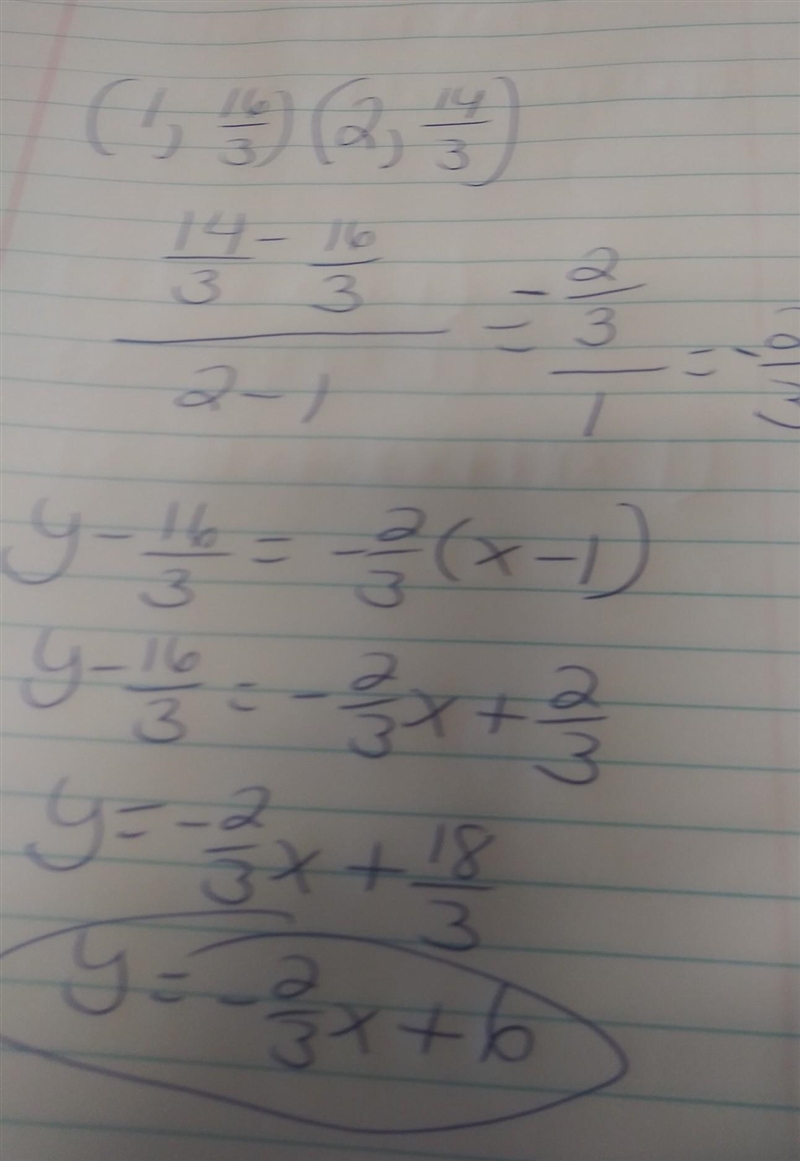 (1, 16/3) (2, 14/3)
(14/3 - 16/3)/(2 - 1) = (-2/3)/1 = -2/3
y - 16/3 = -2/3(x - 1)
y - 16/3 = -2/3x + 2/3
y = -2/3x + 18/3
y = -2/3x + 6